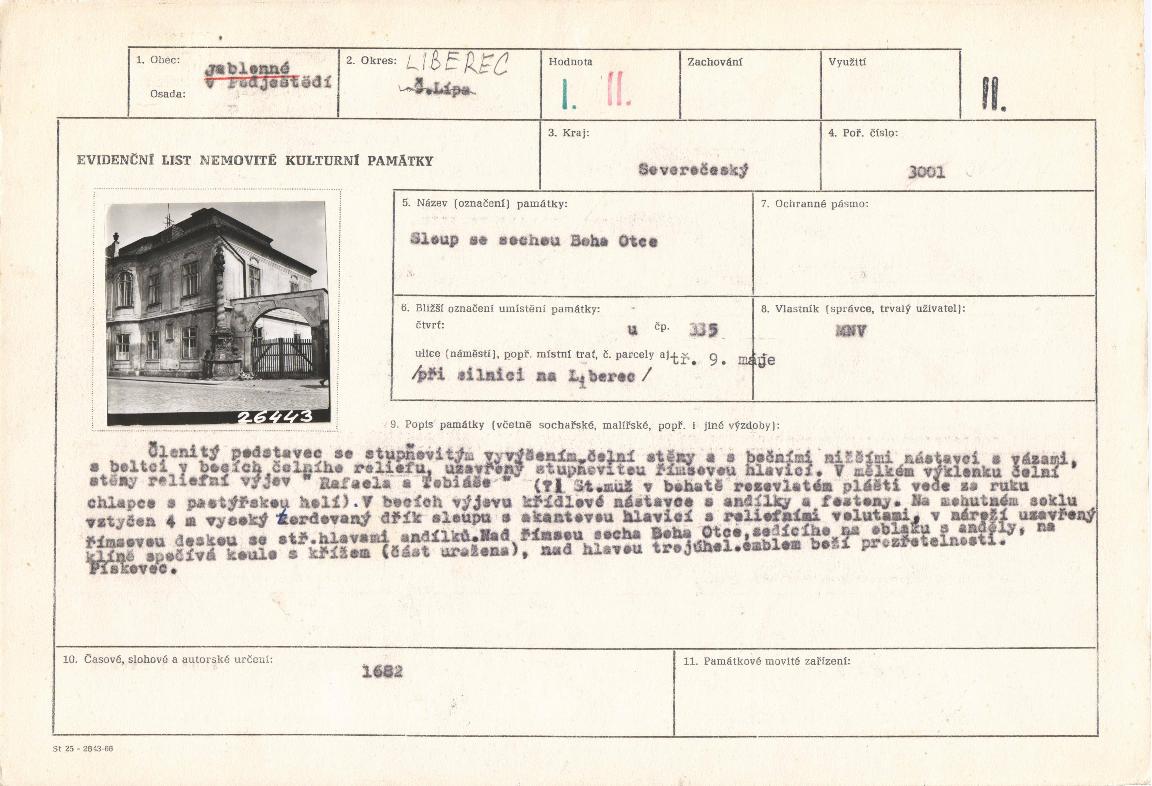 1. Obec:
Jablonné
v Podještědí
Osada:
2. Okres: LIBEREC
Č.Lípa
Hodnota
I. II.
Zachování
Využití
II.
EVIDENČNÍ LIST NEMOVITÉ KULTURNÍ PAMÁTKY
3. Kraj:
Severočeský
4. Poř. číslo:
3001
26443
5. Název (označení) památky:
Sloup se sochou Boha Otce
7. Ochranné pásmo:
6. Bližší označení umístění památky:
čtvrť: u čp. 335
ulice (náměstí), popř. místní trať, č. parcely aj. tř. 9. máje
/při silnici na Liberec/
8. Vlastník (správce, trvalý uživatel):
MNV
9. Popis památky (včetně sochařské, malířské, popř. i jiné výzdoby):
Členitý podstavec se stupňovitým vyvýšením čelní stěny a s bočními nižšími nástavci s vázami,
s boltci v bocích čelního reliefu, uzavřený stupňovitou římsovou hlavicí. V mělkém výklenku čelní
stěny reliefní výjev " Rafaela a Tobiáše" (?! St.muž v bohatě rozevlátém plášti vede za ruku
chlapce s pastýřskou holí). V bocích výjevu křídlové nástavce s andílky a festony. Na mohutném soklu
vztyčen 4 m vysoký tordovaný dřík sloupu s akantovou hlavicí s reliefními volutami, v nároží uzavřený
římsovou deskou se stř.hlavami andílků.Nad římsou socha Boha Otce,sedícího na oblaku s anděly, na
klíně spočívá koule s křížem (část uražena), nad hlavou trojúhel.emblem boží prozřetelnosti.
Pískovec.
10. Časové, slohové a autorské určení:
1682
11. Památkové movité zařízení:
St 25 - 2843-68